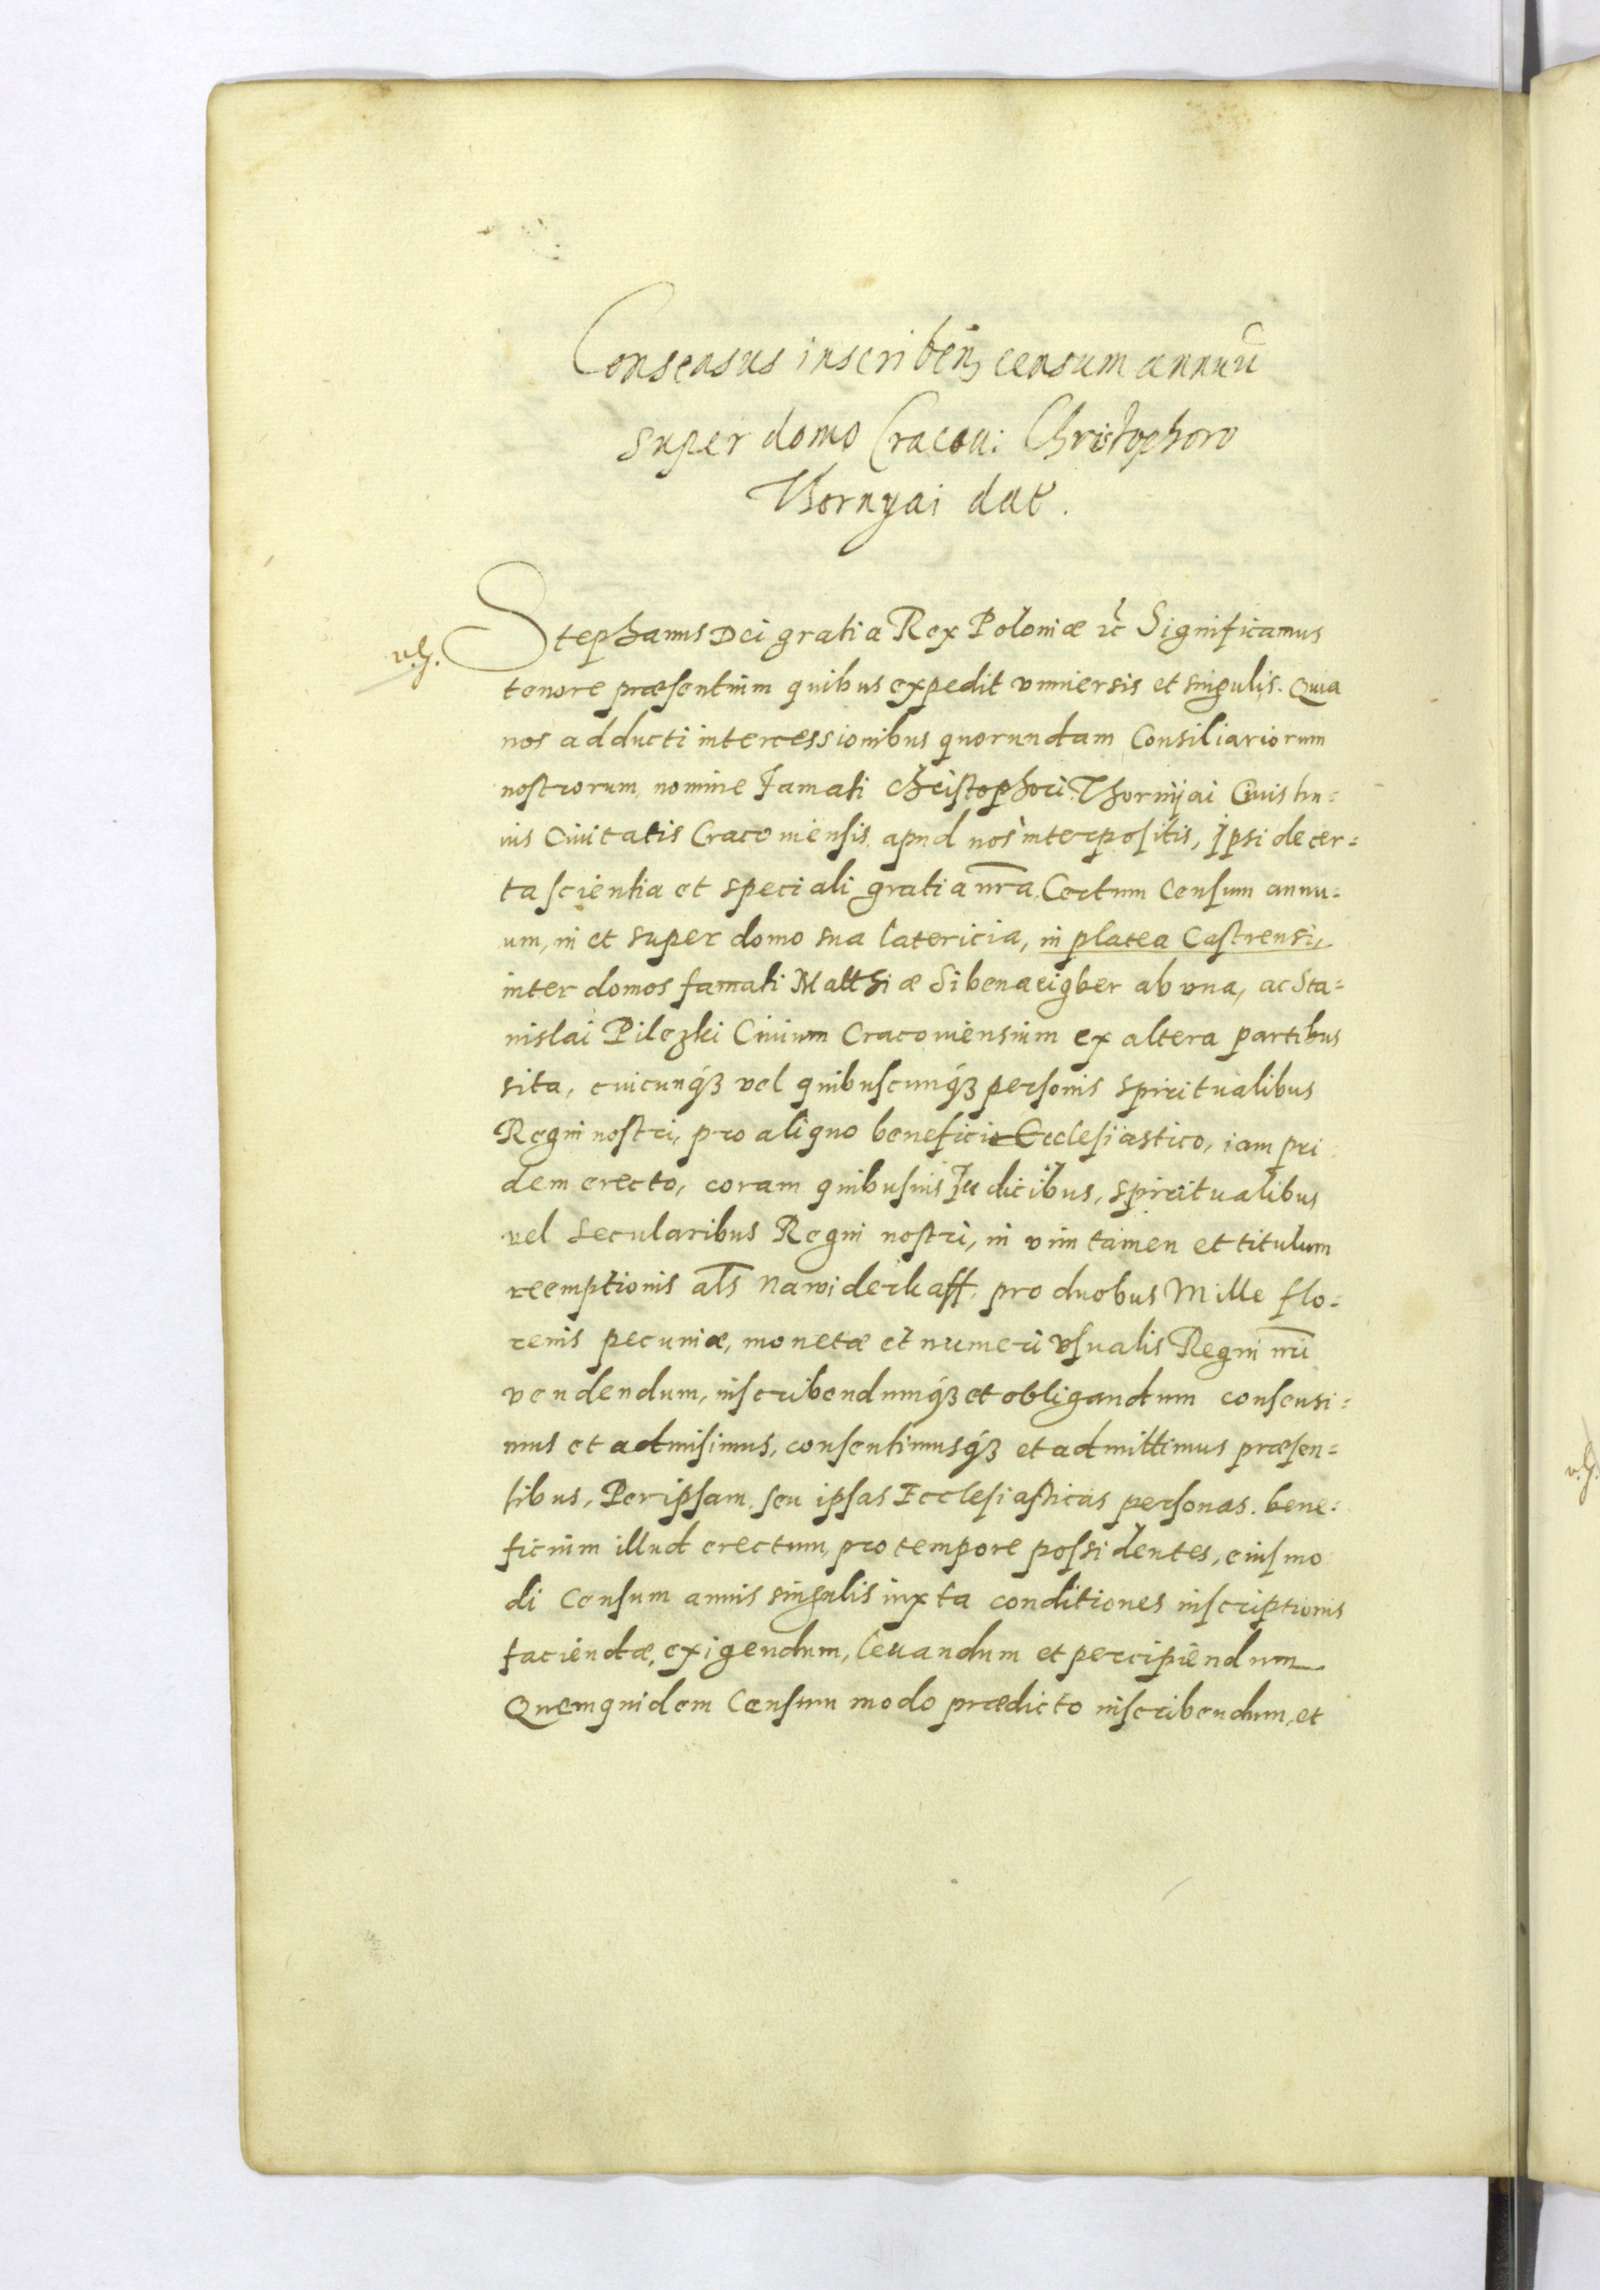 Consensus inscribeñ censum annuũ
super domo Cracou: Christophoro
Thornyai dat.
Stephanus Dei gratia Rex Poloniæ ꝛc̃ Significamus
tenore præsentium quibus expedit vniuersis et singulis. Quia
nos adducti intercessionibus quorundam Consiliariorum
nostrorum, nomine famati Christophori Thornÿai Ciuis hu=
ius Ciuitatis Cracouiensis, apud nos interpositis, ipsi de cer=
ta scientia et speciali gratia nr̃a. Certum Censum annu=
um, in et super domo sua latericia, in platea Castrensi,
inter domos famati Matthiæ Sibenaeigber ab vna, ac Sta=
nislai Pilczki Ciuium Cracouiensium ex altera partibus
sita, cuicunq́ꝫ vel quibuscunq́ꝫ personis spiritualibus
Regni nostri, pro aliquo beneficio Ecclesiastico, iam pri
dem erecto, coram quibusuis Judicibus, spiritualibus
vel Secularibus Regni nostri, in vim tamen et titulum
reemptionis als̃ Nawiderkaff, pro duobus Mille flo=
renis pecuniæ, monetæ et numeri vsualis Regni nr̃i
vendendum, inscribendumq́ꝫ et obligandum consensi=
mus et admisimus, consentimusq́ꝫ et admittimus præsen=
tibus, Per ipsam, seu ipsas Ecclesiasticas personas. bene=
ficium illud erectum, pro tempore possidentes, eiusmo
di Censum annis singulis iuxta conditiones inscriptionis
faciendæ, exigendum, leuandum et percipiendum
Quemquidem Censum modo prædicto inscribendum, et